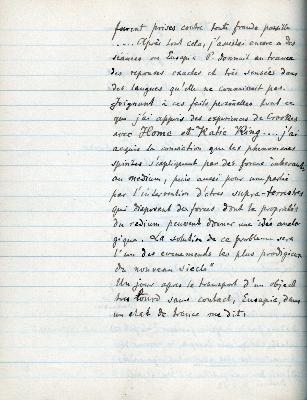 furent prises contre toute fraude possible
..... Après tout cela, j'assistai encore a des
séances ou Eusapia P. donnait en trance
des reponses exactes et très sensées dans
des langues qu'elle ne connaissait pas.
Joignant à ces faits personnelles tout ce
que j'ai appris des experiences de Crookes
avec Home et Katie King.... j'ai
acquis la conviction que les phénomènes
spirites s'expliquent par des forces inherentes
au medium, puis aussi pour une partie
par l'intervention d'êtres supra-terrestres
qui disposent des forces dont les proprietés
du radium peuvent donner une idée analo
gique. La solution de ce problème sera
l'un des evenements les plus prodigieux
du nouveau siecle"
Un jour après le transport d'un object
très lourd sans contact, Eusapia, dans
un etat de trance me dit: